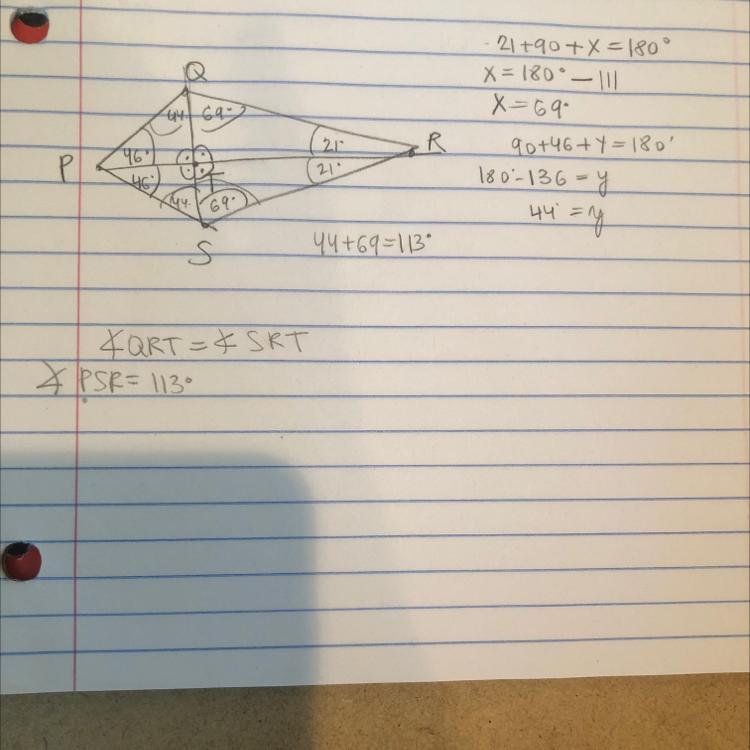 Q
44. 69.
46°
46°
P
21°
21°
R
T
44. 69°
S
21+90+x=180°
x=180°-111
x=69°
90+46+y=180°
180°-136=y
44°=y
44+69=113°
∡QRT=∡SRT
∡PSR=113°